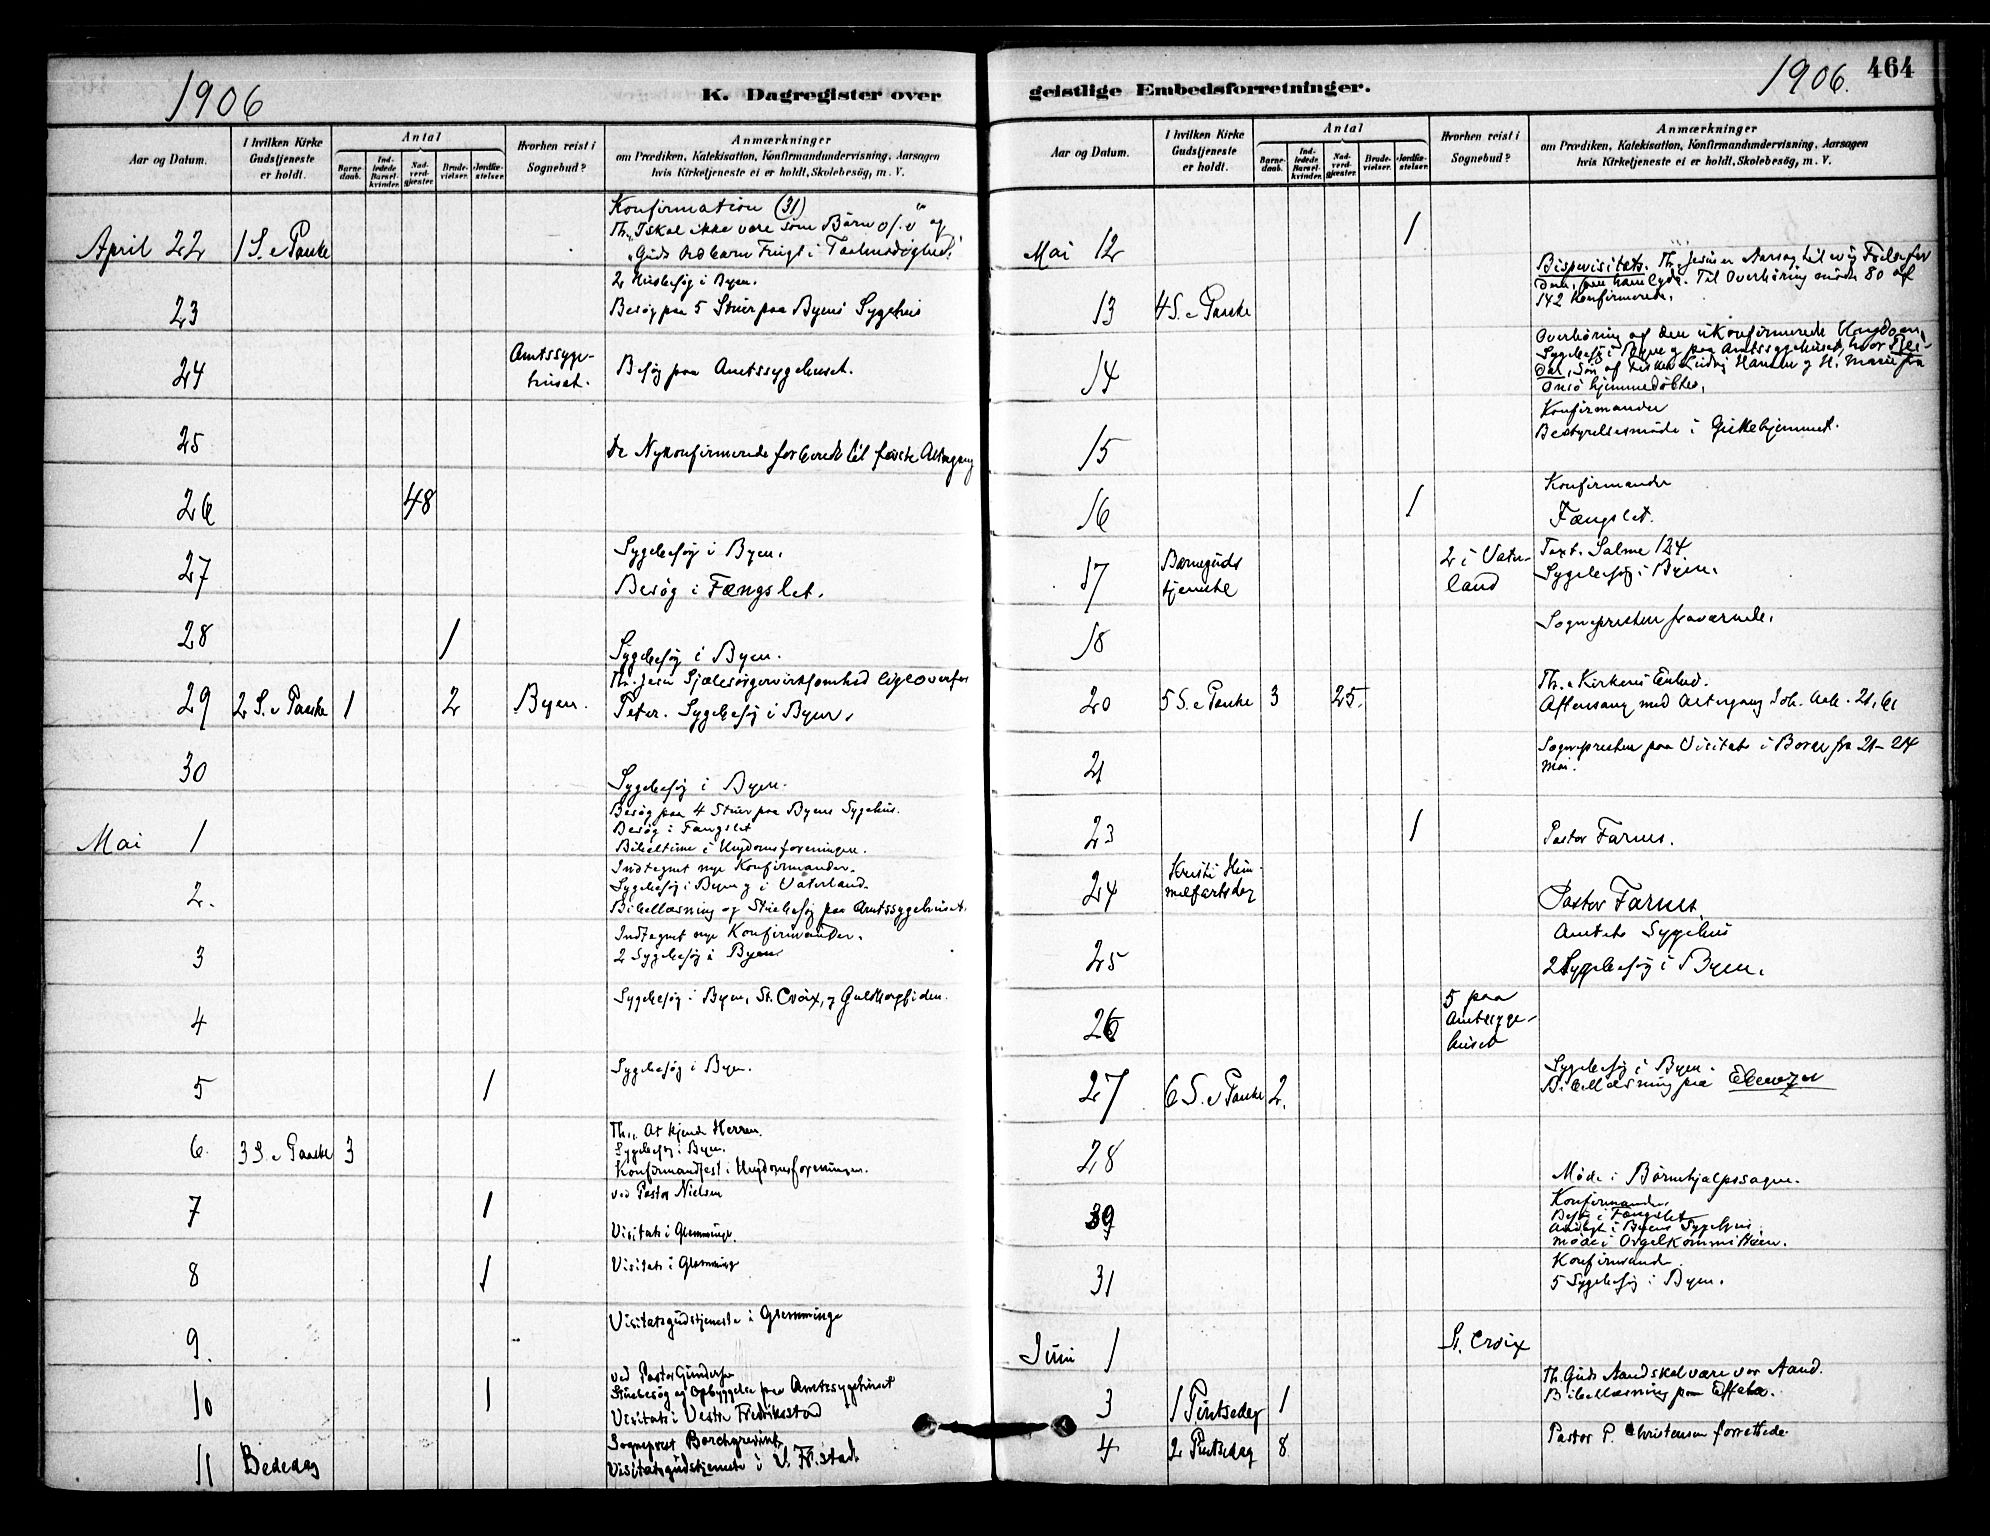 1906
K. Dagregister over
Aar og Datum.
I hvilken Kirke Gudstjeneste er holdt.
Antal
Barnedaab.
Indledede Barselkvinder.
Nadverdgjæster.
Brudevielser.
Jordfæstelser.
Hvorhen reist i Sognebud?
Anmærkninger
om Prædiken, Katekisation, Konfirmandundervisning, Aarsagen
hvis Kirketjeneste ei er holdt, Skolebesøg, m. V.
Konfirmation (31)
April 22 1 S. e Paaske Th. "I skal ikke være som Børn o/.v" og
"Guds Ord barn Frugt i Taalmodighed."
2 Husbesøg i Byen.
23 Besøg paa 5 Stuer paa Byens Sygehus
24 Amtssygehuset. Besøg paa Amtssygehuset.
25 De Nykonfirmerede forberedt til første Altergang
26 48
Sygebesøg i Byen.
27 Besøg i Fængslet.
28 1 Sygebesøg i Byen.
Th. Jesu Sjælesørgervirksomhed ligeoverfor
29 2 S. e Paaske 1 2 Byen. Peter. Sygebesøg i Byen.
30 Sygebesøg i Byen.
Besøg paa 4 Stuer paa Byens Sygehus.
Besøg i Fængslet
Mai 1 Bibeltime i Ungdomsforeningen.
Indtegnet nye Konfirmander.
Sygebesøg i Byen og i Vaterland.
2. Bibellæsning og Stuebesøg paa Amtssygehuset.
Indtegnet nye Konfirmander.
3 2 Sygebesøg i Byen
Sygebesøg i Byen, St. Croix, og Guldbergsiden.
4
Sygebesøg i Byen.
5 1
Th. At kjende Herren.
6 3 S. e Paaske 3 Sygebesøg i Byen.
Konfirmandfest i Ungdomsforeningen.
7 1 ved Pastor Nielsen
Visitats i Glemminge.
8 1 Visitats i Glemminge
Visitatsgudstjeneste i Glemminge
9.
ved Pastor Gundersen
10 1 Stuebesøg og Opbyggelse paa Amtssygehuset
Visitats i Vestre Fredriksstad
Sogneprest Borchgrevink
11 Bededag Visitatsgudstjeneste i V. Fr.stad
geistlige Embedsforretninger.
1906.
464
Aar og Datum.
I hvilken Kirke Gudstjeneste er holdt.
Antal
Barnedaab.
Indledede Barselkvinder.
Nadverdgjæster.
Brudevielser.
Jordfæstelser.
Hvorhen reist i Sognebud?
Anmærkninger
om Prædiken, Katekisation, Konfirmandundervisning, Aarsagen
hvis Kirketjeneste ei er holdt, Skolebesög, m. V.
Mai 12 1
Bispevisitats. Th. Jesus er Aarsag til evig Frelse for
dem, som ham lyde. Til Overhøring mødte 80 af
13 4 S. e Paaske 142 Konfirmerede.
Overhøring af den ukonfirmerede Ungdom.
Sygebesøg i Byen og paa Amtssygehuset, hvor
14 Søn af Ludvig Hansen og H. Marie fra
Onsø hjemmedøbtes.
Konfirmander
15 Bestyrelsesmøde i Gutehjemmet.
Konfirmander
16 1 Fængslet.
17 Børnegudstjeneste 2 i Vaterland Text. Salme 124
Sygebesøg i Byen.
18 Sognepresten fraværende.
Th. Kirkens Enhed.
20 5 S. e Paaske 3 25. Aftensang med Altergang Joh. Aab. 21, 6.
21 Sognepresten paa Visitats i Borge fra 21-24
Mai.
23 1 Pastor Farnes.
24 Kristi Himmelfartsdag Pastor Farnes
Amtets Sygehus
25 2 Sygebesøg i Byen.
26 5 paa Amtssygehuset
Sygebesøg i Byen.
27 6 S. e Paaske 2. Bibellæsning paa Ebenezer
28 Møde i Børnehjælpssagen.
Konfirmander
Besøg i Fængslet
39 Andagt i Byens Sygehus
Møde i Orgelkommitteen.
Konfirmander
31 5 Sygebesøg i Byen.
Juni 1 St. Croix
Th. Guds Aand skal være vor Aand.
3 1 Pintsedag 1 Bibellæsning paa Effata.
4 2 Pintsedag 8 Pastor P. Christensen forrettede